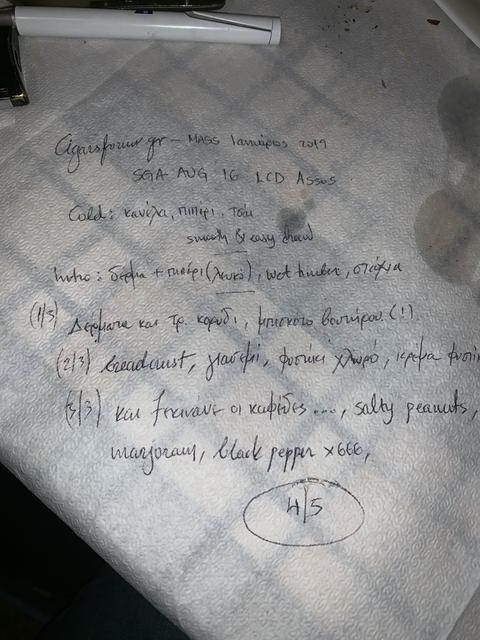 Cigarsforum gr – MASS Ιανουάριος 2019
SGA AUG 16 LCD Assos
Cold: κανέλα, πιπέρι, τσάι
smooth & easy draw
Intro: δέρμα + πιπέρι (λευκό), wet timber, στάχια
(1/3) Δέρματα και τρ. καρύδι, μπισκότο βουτύρου (!).
(2/3) breadcrust, γιασεμί, φυστίκι χλωρό, κρέμα φυστίκι
(3/3) και ξεκινάνε οι καφέδες..., salty peanuts,
marjoram, black pepper x666,
4/5